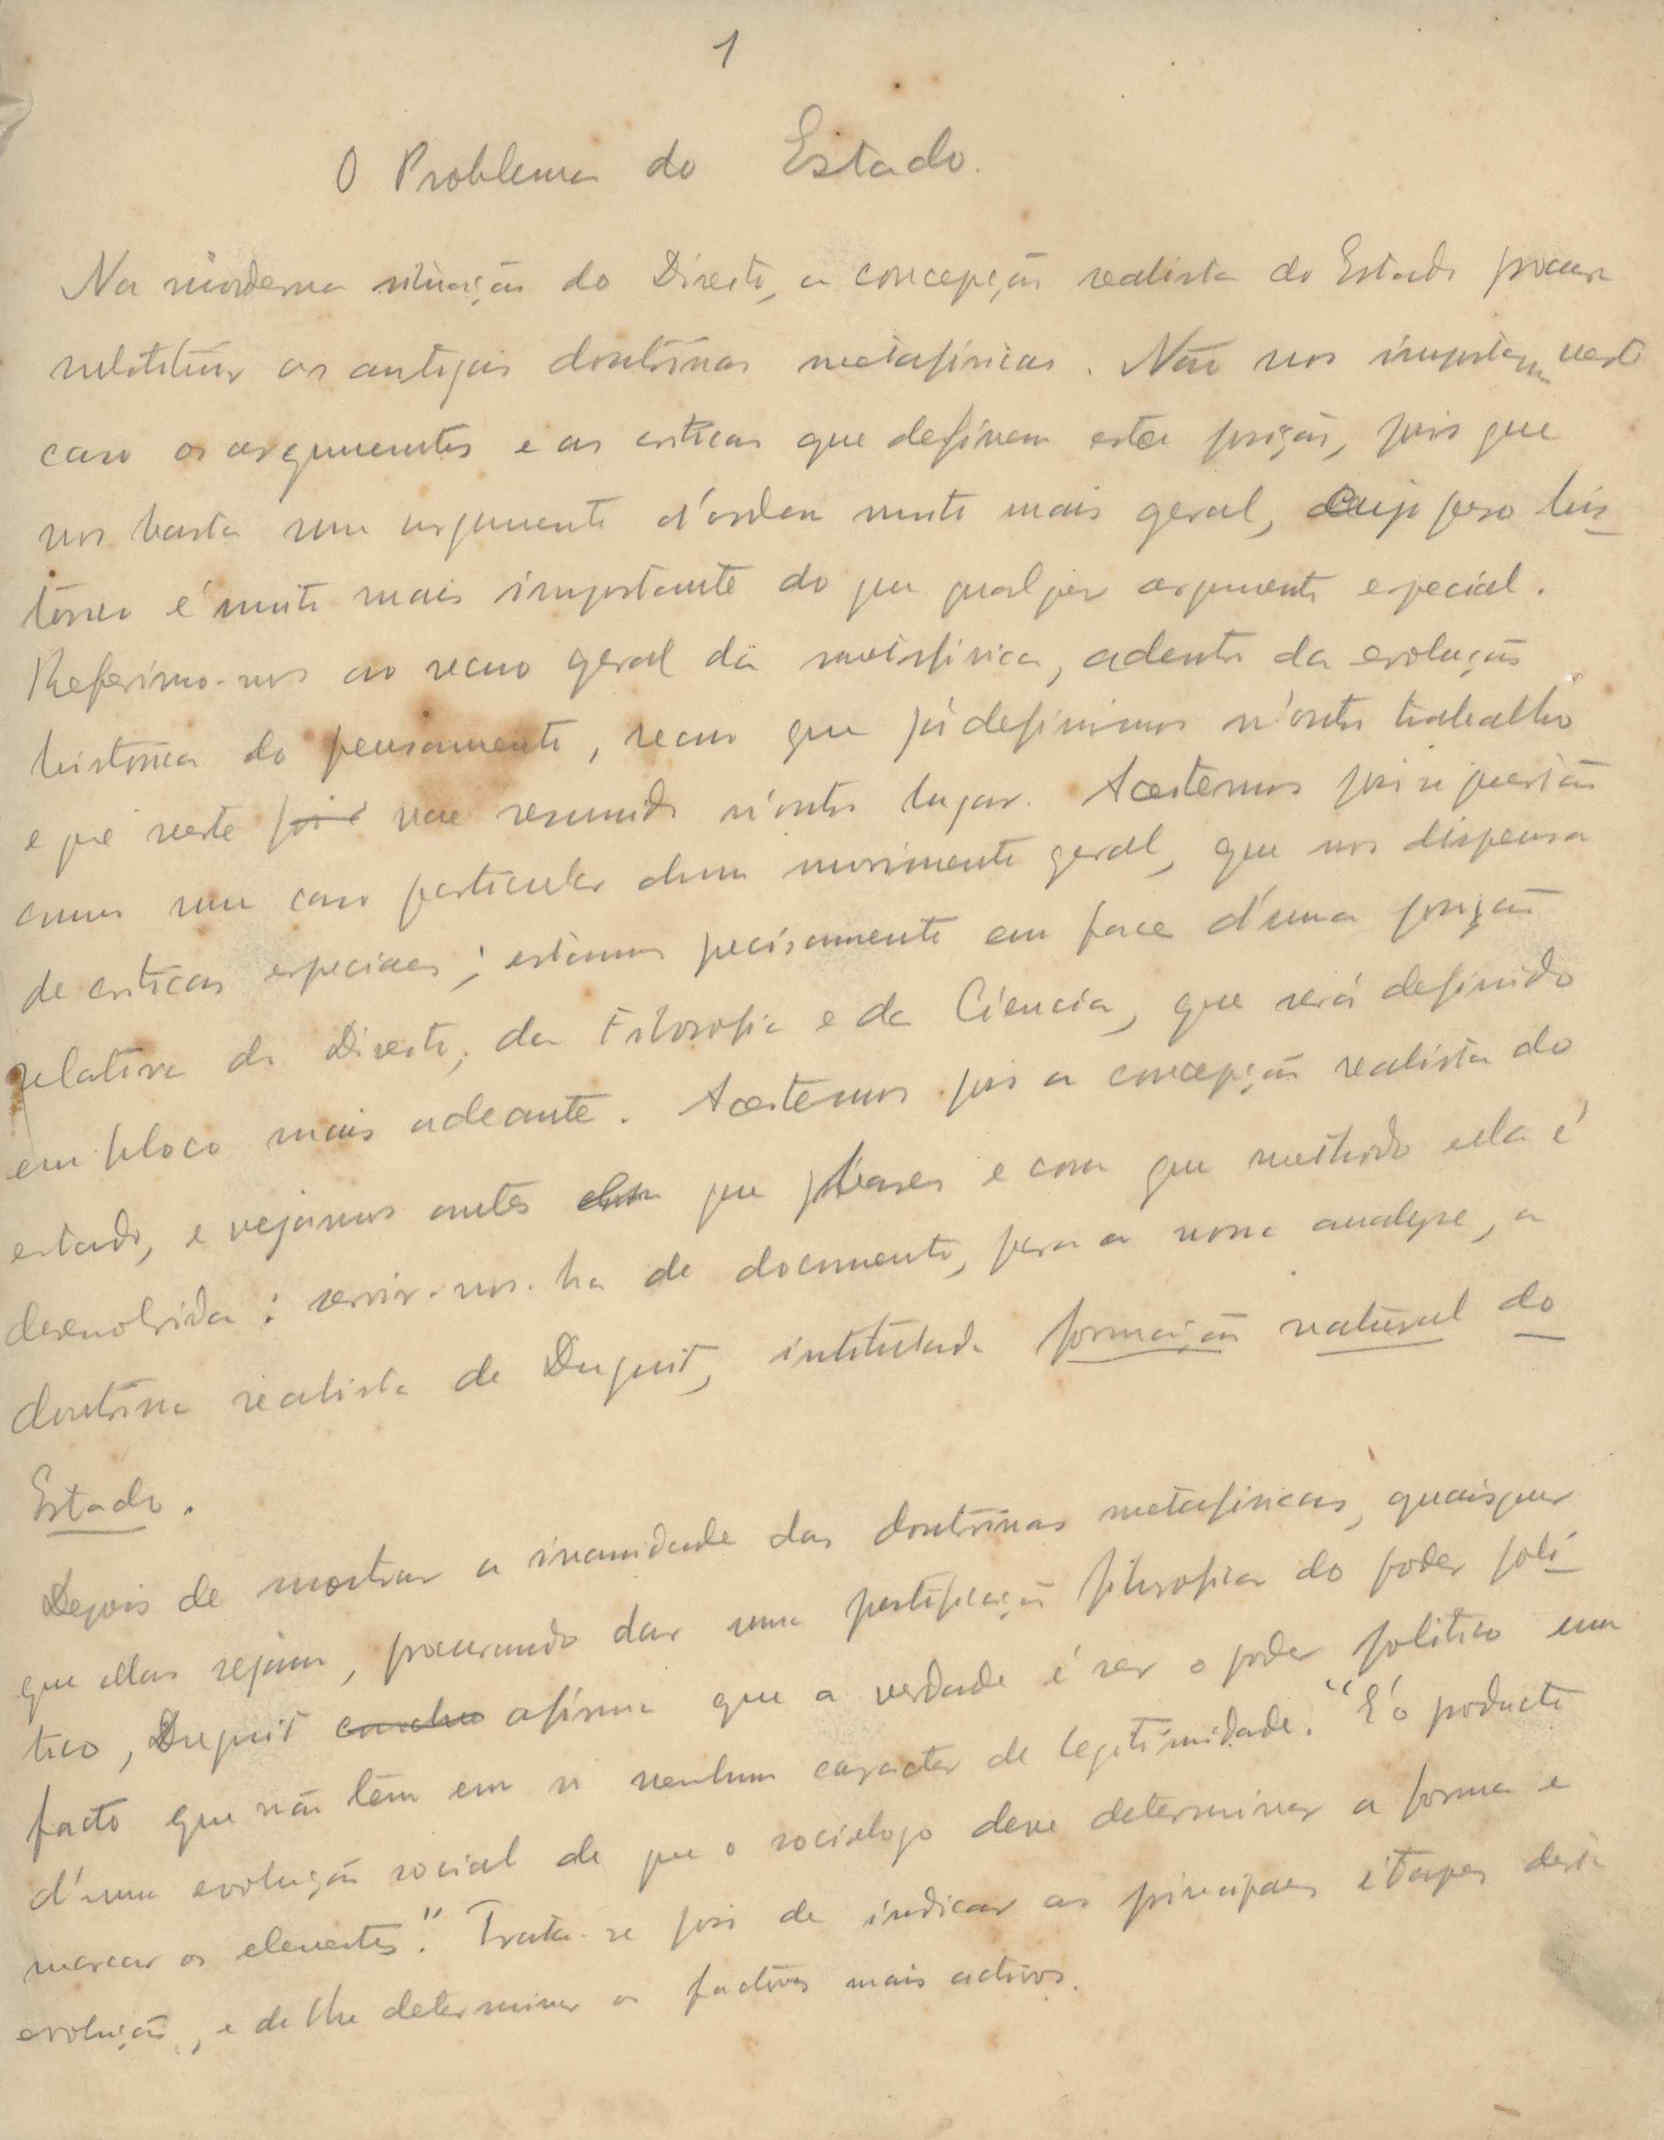 1
O Problema do Estado.
Na moderna situação do Direito, a concepção realista do Estado procura
substituir as antigas doutrinas metafisicas. Não nos importam neste
caso os argumentos e as criticas que definem esta posição, pois que
nos basta um argumento d'ordem muito mais geral, cujo peso his-
tórico é muito mais importante do que qualquer argumento especial.
Referimo-nos ao recuo geral da metafisica, adentro da evolução
historica do pensamento, recuo que já definimos n'outro trabalho
e que neste vae resumido n'outro lugar. Aceitemos pois a questão
como um caso particular dum movimento geral, que nos dispensa
de criticas especiaes; estamos precisamente em face d'uma posição
relativa do Direito, da Filosofia e da Ciencia, que será definido
em bloco mais adeante. Aceitemos pois a concepção realista do
estado, e vejamos antes que bases e com que methodo ella é
desenvolvida: servir-nos-ha de documento, para a nossa analyse, a
doutrina realista de Duguit, intitulada formação natural do
Estado.
Depois de mostrar a inanidade das doutrinas metafisicas, quaisquer
que ellas sejam, procurando dar uma justificação filosofica do poder poli-
tico, Duguit afirma que a verdade é ser o poder politico um
facto que não têm em si nenhum caracter de legitimidade. "É o producto
d'uma evolução social de que o sociologo deve determinar a forma e
marcar os elementos." Trata-se pois de indicar as principaes étapes desta
evolução, e de lhe determinar os factores mais activos.